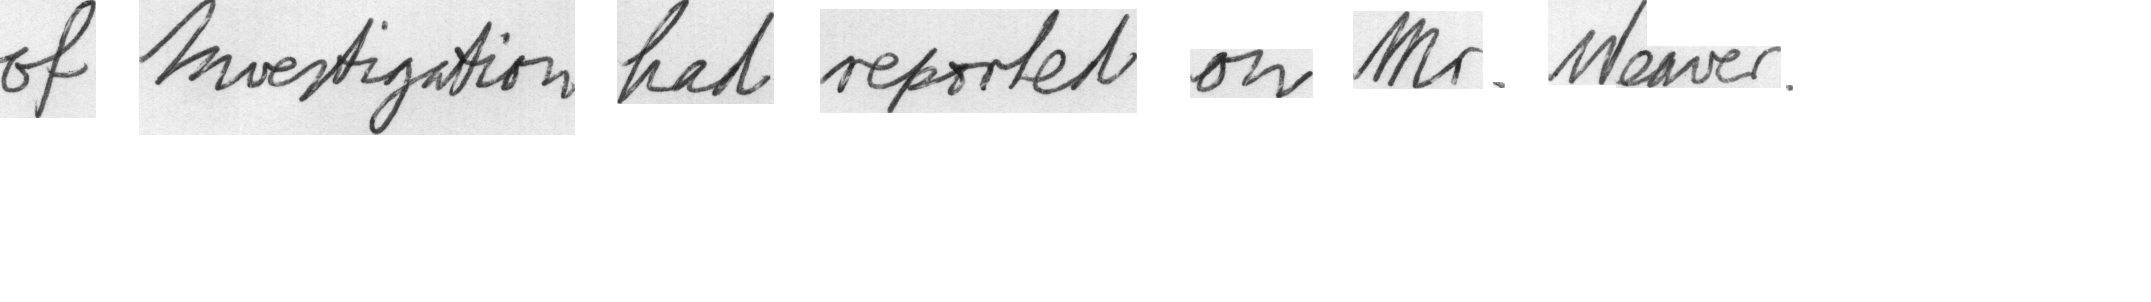 of Investigation had reported on Mr. Weaver.